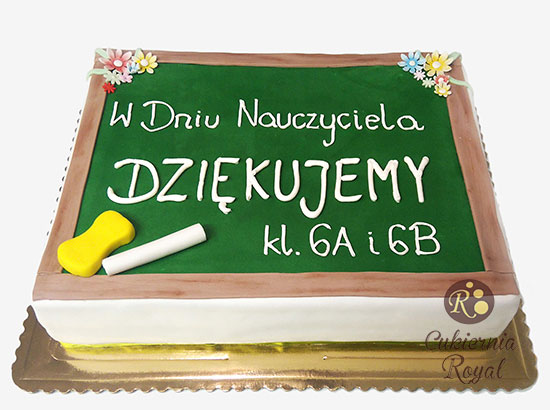 W Dniu Nauczyciela
DZIĘKUJEMY
kl. 6A i 6B
R
Cukiernia
Royal